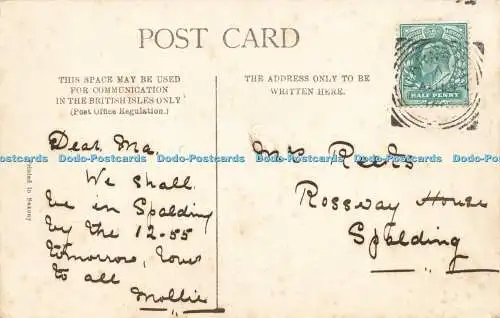 POST CARD
THIS SPACE MAY BE USED
FOR COMMUNICATION
IN THE BRITISH ISLES ONLY
(Post Office Regulation.)
THE ADDRESS ONLY TO BE
WRITTEN HERE.
HALF PENNY
Dear Ma,
We shall
be in Spalding
by the 12-55
tomorrow, love
to all
Mollie
Mrs
Rossway House
Spalding
Printed in Saxony
Dodo-Postcards Dodo-Postcards Dodo-Postcards Dodo-Postcards Dodo-Postcards